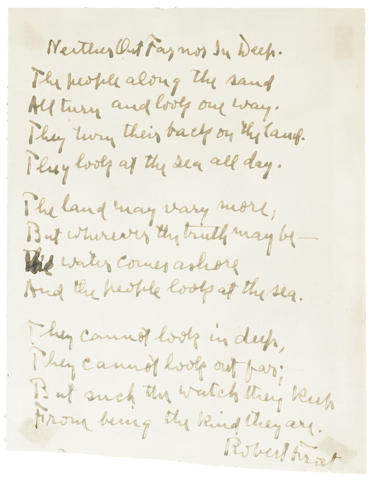 Neither Out Far nor In Deep.
The people along the sand
All turn and look one way.
They turn their back on the land.
They look at the sea all day.
The land may vary more;
But wherever the truth may be—
The water comes ashore
And the people look at the sea.
They cannot look in deep,
They cannot look out far;
But such the watch they keep
From being the kind they are.
Robert Frost